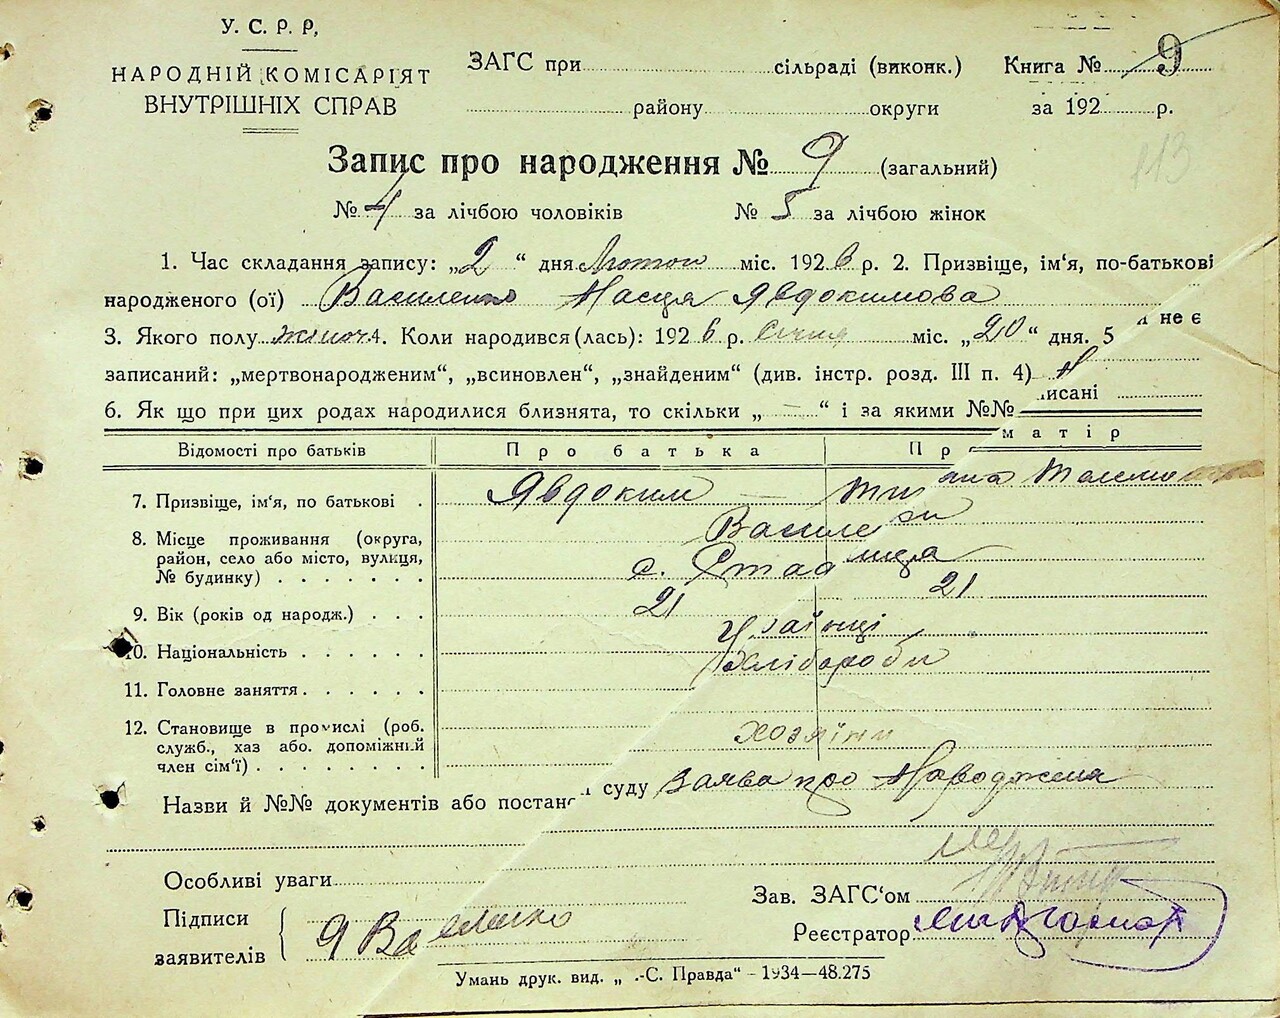 У. С. Р. Р,
НАРОДНІЙ КОМІСАРІЯТ
ВНУТРІШНІХ СПРАВ
ЗАГС при сільраді (виконк.) Книга № 9
району округи за 192 р.
113
Запис про народження № 9 (загальний)
№ 4 за лічбою чоловіків № 5 за лічбою жінок
1. Час складання запису: „2“ дня Лютого міс. 1926 р. 2. Призвіще, ім'я, по-батькові
народженого (ої) Василенко Настя Явдокимова
3. Якого полу жіноч. 4. Коли народився (лась): 1926 р. Січня міс. „20“ дня. 5 не є
записаний: „мертвонародженим“, „всиновлен“, „знайденим“ (див. інстр. розд. III п. 4)
6. Як що при цих родах народилися близнята, то скільки „ — “ і за якими №№ исані
Відомості про батьків Про батька Пр матір
7. Призвіще, ім'я, по батькові Явдоким —
8. Місце проживання (округа,
район, село або місто, вулиця,
№ будинку)
с.
9. Вік (років од народж.) 21 21
10. Національність Українці
11. Головне заняття Хлібороби
12. Становище в промислі (роб.
служб., хаз або. допоміжний
член сім'ї) хозяїни
Назви й №№ документів або постанов суду заява про Народження
Особливі уваги
Зав. ЗАГС'ом
Підписи
заявителів Я Василенко
Реєстратор
Умань друк. вид. „ .-С. Правда“ - 1934—48.275